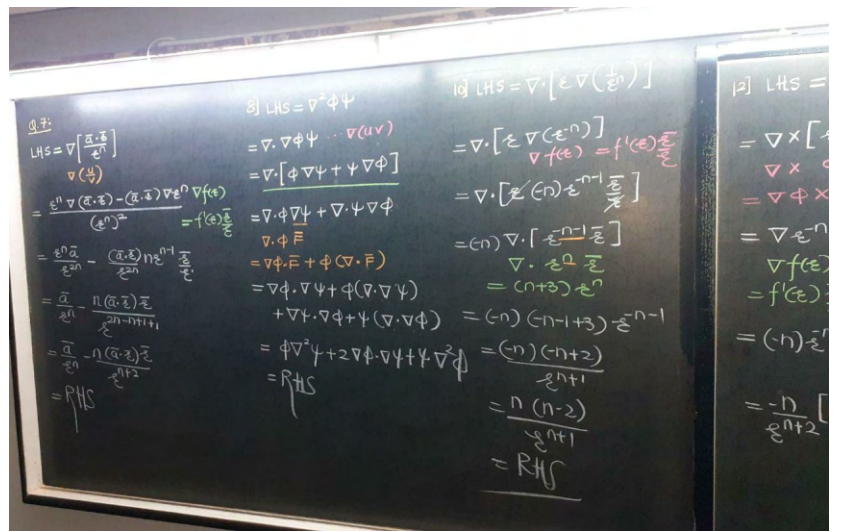 Q.7:
LHS = ∇[ā·r̄/rⁿ]
∇(u/v)
= rⁿ ∇(ā·r̄) - (ā·r̄) ∇rⁿ / (rⁿ)² ∇f(r) = f'(r) r̄/r
= rⁿ ā / r²ⁿ - (ā·r̄) n rⁿ⁻¹ / r²ⁿ r̄/r
= ā/rⁿ - n(ā·r̄) r̄ / r²ⁿ⁻ⁿ⁺¹⁺¹
= ā/rⁿ - n(ā·r̄) r̄ / rⁿ⁺²
= RHS
8] LHS = ∇²φψ
= ∇·∇φψ ... ∇(uv)
= ∇·[φ∇ψ + ψ∇φ]
= ∇·φ∇ψ + ∇·ψ∇φ
∇·φF̄
= ∇φ·F̄ + φ(∇·F̄)
= ∇φ·∇ψ + φ(∇·∇ψ)
+ ∇ψ·∇φ + ψ(∇·∇φ)
= φ∇²ψ + 2∇φ·∇ψ + ψ∇²φ
= RHS
10] LHS = ∇·[r ∇(1/rⁿ)]
= ∇·[r ∇(r⁻ⁿ)]
∇f(r) = f'(r) r̄/r
= ∇·[r (-n) r⁻ⁿ⁻¹ r̄/r]
= (-n) ∇·[r⁻ⁿ⁻¹ r̄]
∇·rⁿ r̄
= (n+3) rⁿ
= (-n) (-n-1+3) r⁻ⁿ⁻¹
= (-n) (-n+2) / rⁿ⁺¹
= n (n-2) / rⁿ⁺¹
= RHS
12] LHS =
= ∇ × [
∇ ×
= ∇φ ×
= ∇r⁻ⁿ
∇f(r)
= f'(r)
= (-n) r⁻ⁿ
= -n / rⁿ⁺² [